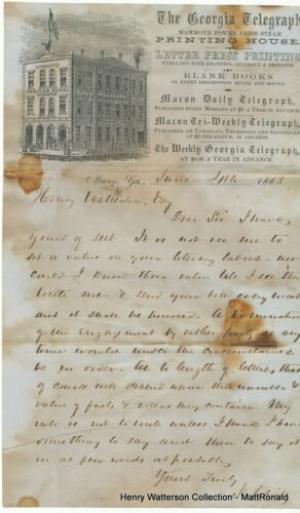 The Georgia Telegraph
MAMMOTH POWER PRESS STEAM
PRINTING HOUSE.
LETTER PRESS PRINTING
EXECUTED WITH NEATNESS, ACCURACY & DESPATCH
BLANK BOOKS
OF EVERY DESCRIPTION RULED AND BOUND.
Macon Daily Telegraph,
PUBLISHED EVERY MORNING AT A YEAR IN ADVANCE.
Macon Tri-Weekly Telegraph,
PUBLISHED ON TUESDAYS, THURSDAYS AND SATURDAYS
PER ANNUM, IN ADVANCE.
The Weekly Georgia Telegraph,
A YEAR IN ADVANCE.
Macon, Ga., June 1863
Henry Watterson, Esq
Dear Sir I have,
yours of It is not for me to
set a value on your literary labors nor
could I know their value till I see them
Write me & send your bill every week
and it shall be honored. A termination
of the engagement by either party at any
time would under the circumstances
be in order. As to length of letters, that
of course will depend upon the number &
value of facts & ideas they contain. My
rule is not to write unless I think I have
something to say and then to say it
in as few words as possible.
Yours Truly
Henry Watterson Collection - MattRonald